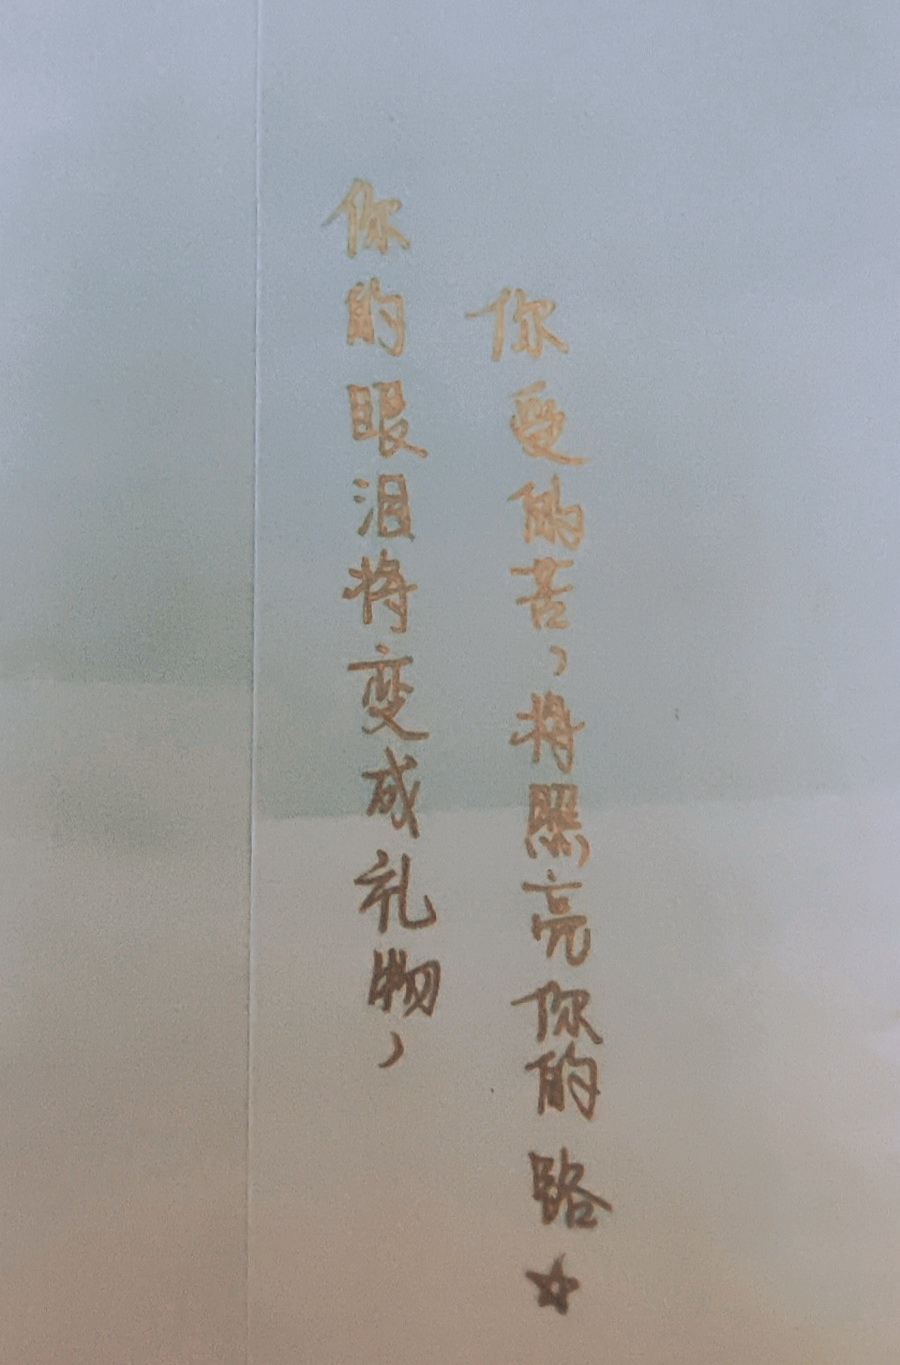 你的眼泪将变成礼物，
你受的苦，将照亮你的路☆